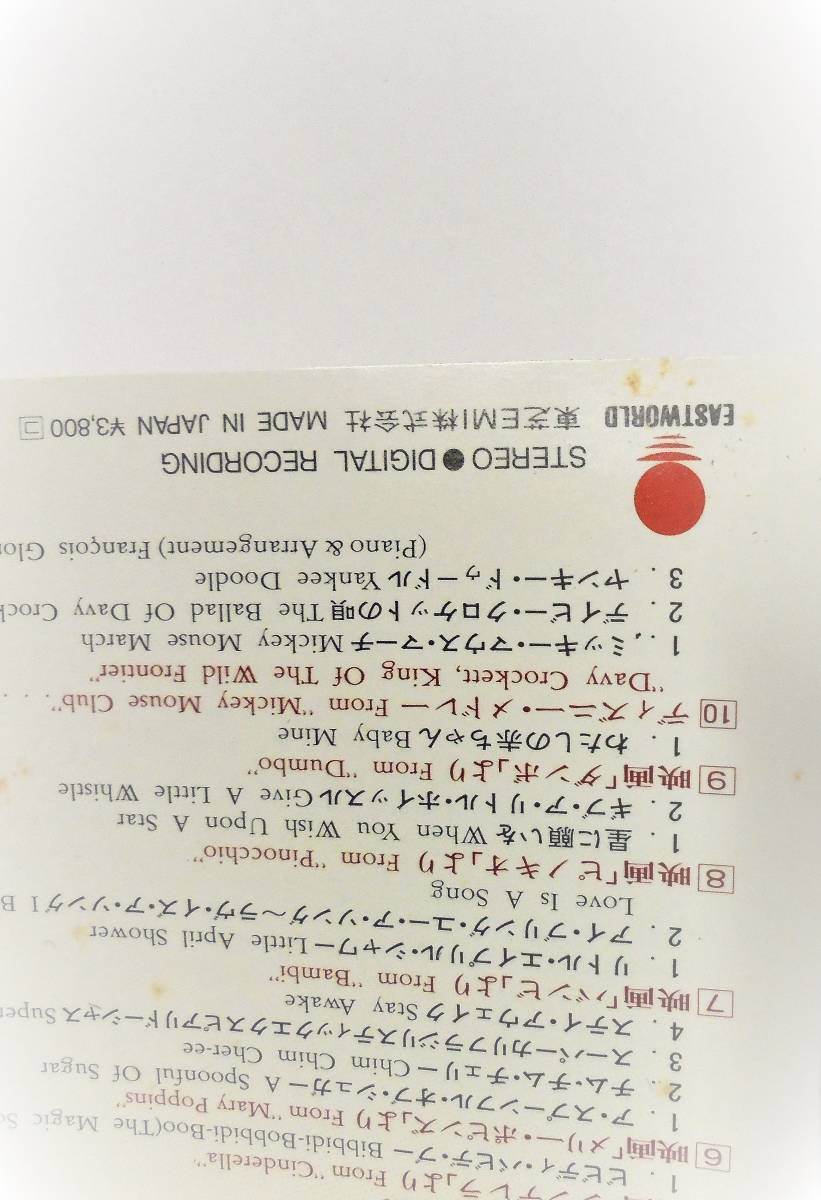 ンデレラ」より From "Cinderella"
1．ビビディ・バビディ・ブー Bibbidi-Bobbidi-Boo(The Magic
6 映画「メリー・ポピンズ」より From "Mary Poppins"
1．ア・スプーンフル・オブ・シュガー A Spoonful Of Sugar
2．チム・チム・チェリー Chim Chim Cher-ee
3．スーパーカリフラジリスティックエクスピアリドーシャス Super
4．ステイ・アウェイク Stay Awake
7 映画「バンビ」より From "Bambi"
1．リトル・エイプリル・シャワー Little April Shower
2．アイ・ブリング・ユー・ア・ソング〜ラヴ・イズ・ア・ソング I B
Love Is A Song
8 映画「ピノキオ」より From "Pinocchio"
1．星に願いを When You Wish Upon A Star
2．ギブ・ア・リトル・ホイッスル Give A Little Whistle
9 映画「ダンボ」より From "Dumbo"
1．わたしの赤ちゃん Baby Mine
10 ディズニー・メドレー From "Mickey Mouse Club"...
"Davy Crockett, King Of The Wild Frontier"
1．ミッキー・マウス・マーチ Mickey Mouse March
2．デイビー・クロケットの唄 The Ballad Of Davy Crock
3．ヤンキー・ドゥードル Yankee Doodle
(Piano & Arrangement) François Glor
STEREO●DIGITAL RECORDING
EASTWORLD 東芝EMI株式会社 MADE IN JAPAN ¥3,800 コ